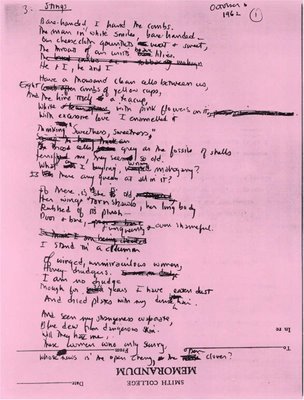 3. Stings
October 6
1962
1
Bare-handed, I hand the combs.
The man in white smiles, bare-handed.
Our cheesecloth gauntlets neat & sweet,
The throats of our wrists
He & I, he and I
Have a thousand clean cells between us,
Eight combs of yellow cups,
And the hive itself a teacup,
White with pink flowers on it,
With excessive love I enamelled it
Thinking 'Sweetness, sweetness,"
The brood cells gray as the fossils of shells
Terrified me, they seem so old.
What I buying, wormy mahogany?
Is there any queen at all in it?
If there is, she is old
Her wings torn shawls, her long body
Rubbed of its plush -
Poor & bare, & unqueenly & even shameful.
I stand in a column
Of winged, unmiraculous women,
Honey-drudgers.
I am no drudge
Though for years I have eaten dust
And dried plates with my hair.
And seen my strangeness evaporate,
Blue dew from dangerous skin.
Will they hate me,
These women who only scurry,
Whose news is the open cherry, the open clover?
SMITH COLLEGE
MEMORANDUM
Date
To
From
In re